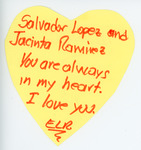 Salvador Lopez and
Jacinta Ramirez
You are always
in my heart.
I love you.
ELR